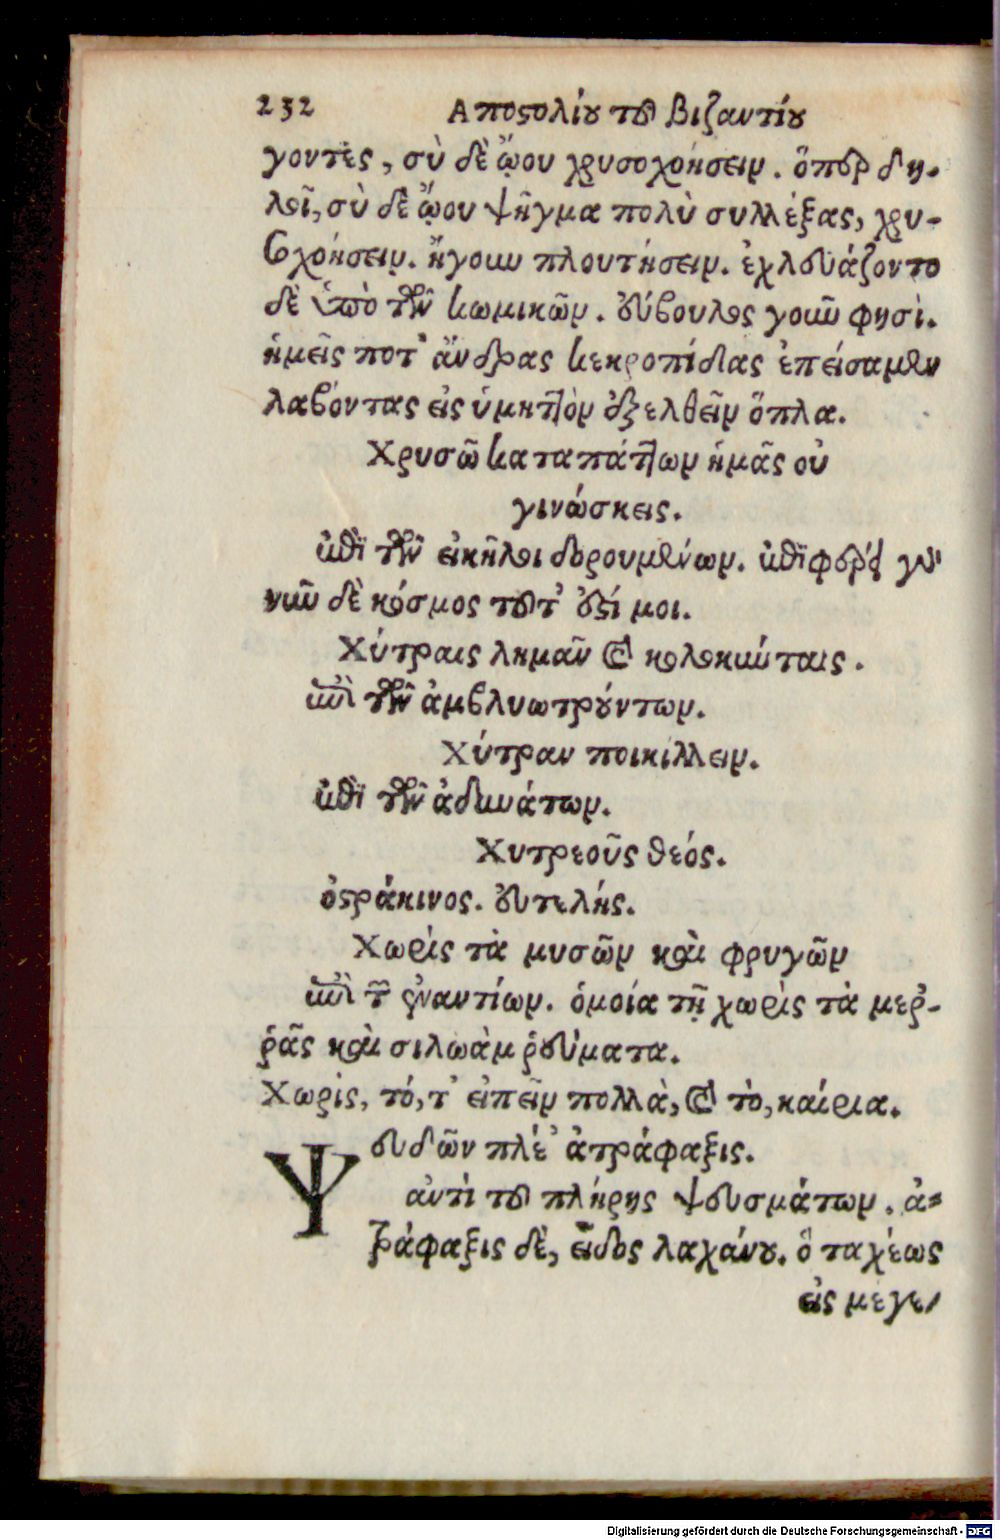 232 Αποστολίου του βιζαντίου
γοντες, σὺ δὲ ᾤου χρυσοχοήσειν. ὅπερ δη-
λοῖ, σὺ δὲ ᾤου ψῆγμα πολὺ συλλέξας, χρυ-
σοχοήσειν. ἤγουν πλουτήσειν. ἐχλευάζοντο
δὲ ὑπὸ τῶν κωμικῶν. εὔβουλος γοῦν φησὶ.
ἡμεῖς ποτ' ἄνδρας κεκροπίδας ἐπείσαμεν
λαβόντας εἰς ὑμηττὸν ἐξελθεῖν ὅπλα.
Χρυσῶ καταπάττων ἡμᾶς οὐ
γινώσκεις.
ἐπὶ τῶν εἰκῆ λοιδορουμένων. ἐπιφέρει
νῦν δὲ κόσμος τοῦτ' ἐστί μοι.
Χύτραις λημᾶν καὶ κολοκύνταις.
ἐπὶ τῶν ἀμβλυωτρούντων.
Χύτραν ποικίλλειν.
ἐπὶ τῶν ἀδυνάτων.
Χυτρεοῦς θεός.
ὀστράκινος. εὐτελής.
Χωρὶς τὰ μυσῶν καὶ φρυγῶν
ἐπὶ τῶν ἐναντίων. ὁμοία τῇ χωρὶς τὰ μερ-
ρᾶς καὶ σιλωὰμ ῥεύματα.
Χωρὶς, τό, τ' εἰπεῖν πολλὰ, καὶ τὸ, καίρια.
Ψευδῶν πλέ' ἀτράφαξις.
ἀντὶ τοῦ πλήρης ψευσμάτων. ἀ-
τράφαξις δὲ, εἶδος λαχάνου. ὃ ταχέως
εἰς μέγε-
Digitalisierung gefördert durch die Deutsche Forschungsgemeinschaft - DFG